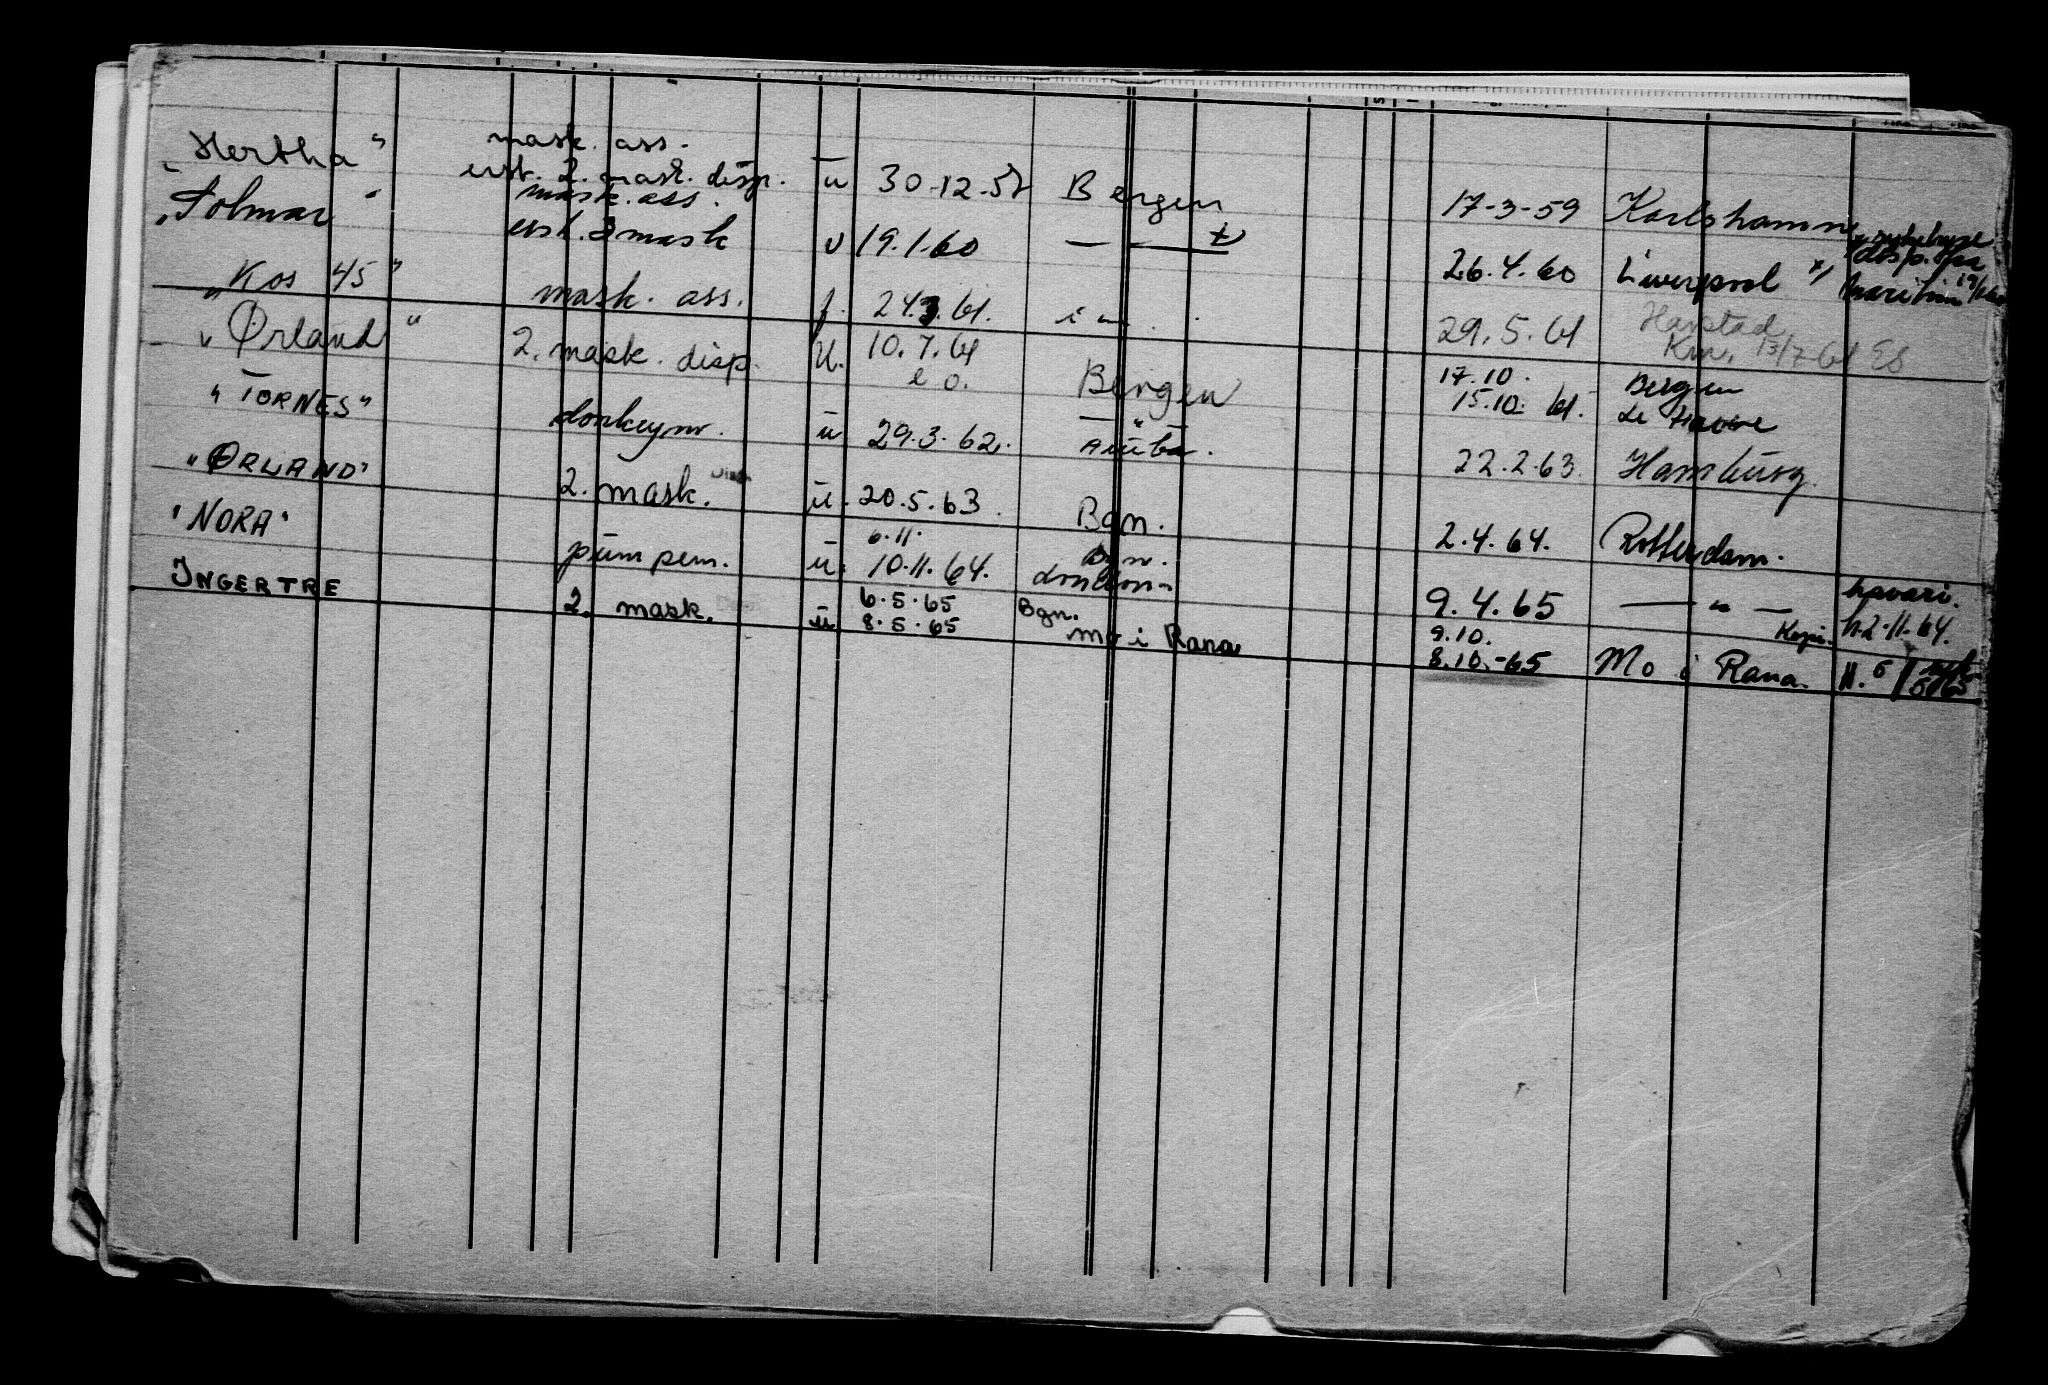 "Hertha" mask. ass.
erst. 2. mask. disp. u 30-12-58 Bergen 17-3-59 Karlshamn sykehus
"Solmar" mask. ass.
erst. 3 mask u 19.1.60 — " — 26.4.60 Liverpool disp. fra
Maritim
"Kos 45" mask. ass. f. 24.3.61. 29.5.61 Harstad
Kvn. 13/7 61 ES
"Ørland" 2. mask. disp. u. 10.7.61 Bergen 17.10. Bergen
e o. 15.10. 61. Le Havre
"TORNES" donkeym. u 29.3.62. — " —
Aruba. 22.2.63. Hamburg.
"ØRLAND" 2. mask. u. 20.5.63. Bgn. 2.4.64. Rotterdam.
"NORA" pumpem. u. 6.11. Bgn.
10.11.64. London 9.4.65 — " — havari.
h. 2.11.64.
INGERTRE 2. mask. u 6.5.65 Bgn. 9.10. Kopi.
8.5.65 Mo i Rana 8.10.-65 Mo i Rana.